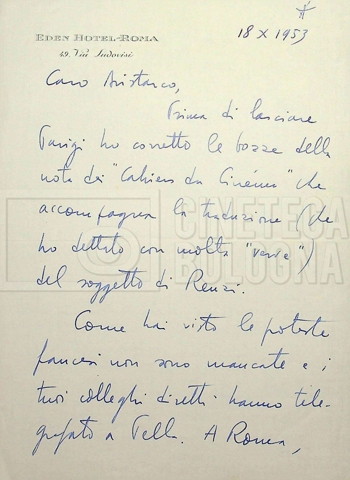 EDEN HOTEL-ROMA
49, Via Ludovisi
18 X 1953
Caro Aristarco,
Prima di lasciare
Parigi ho corretto le bozze della
nota dei "Cahiers du Cinéma" che
accompagna la traduzione (che
ho dettato con molta "verve")
del soggetto di Renzi.
Come hai visto le proteste
francesi non sono mancate e i
tuoi colleghi diretti hanno tele-
grafato a Pella. A Roma,
CINETECA
BOLOGNA